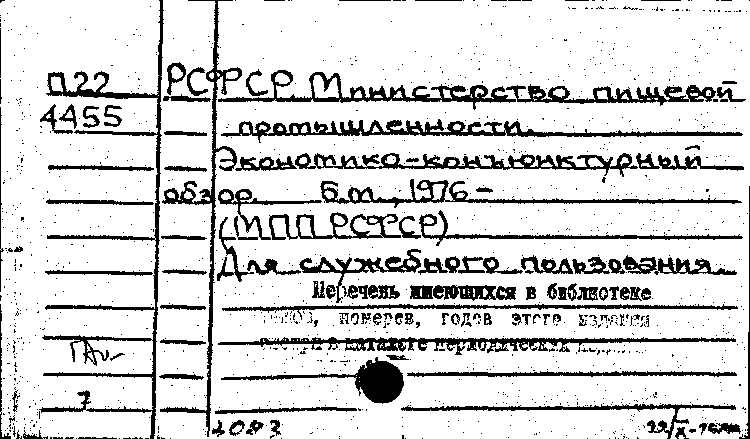 П22 РСФСР. Министерство пищевой
4455 промышленности.
Экономико-конъюнктурный
обзор. Б.м., 1976 -
(МПП РСФСР)
Для служебного пользования.
Перечень имеющихся в библиотеке
номеров, годов этого издания
в каталоге периодических
7